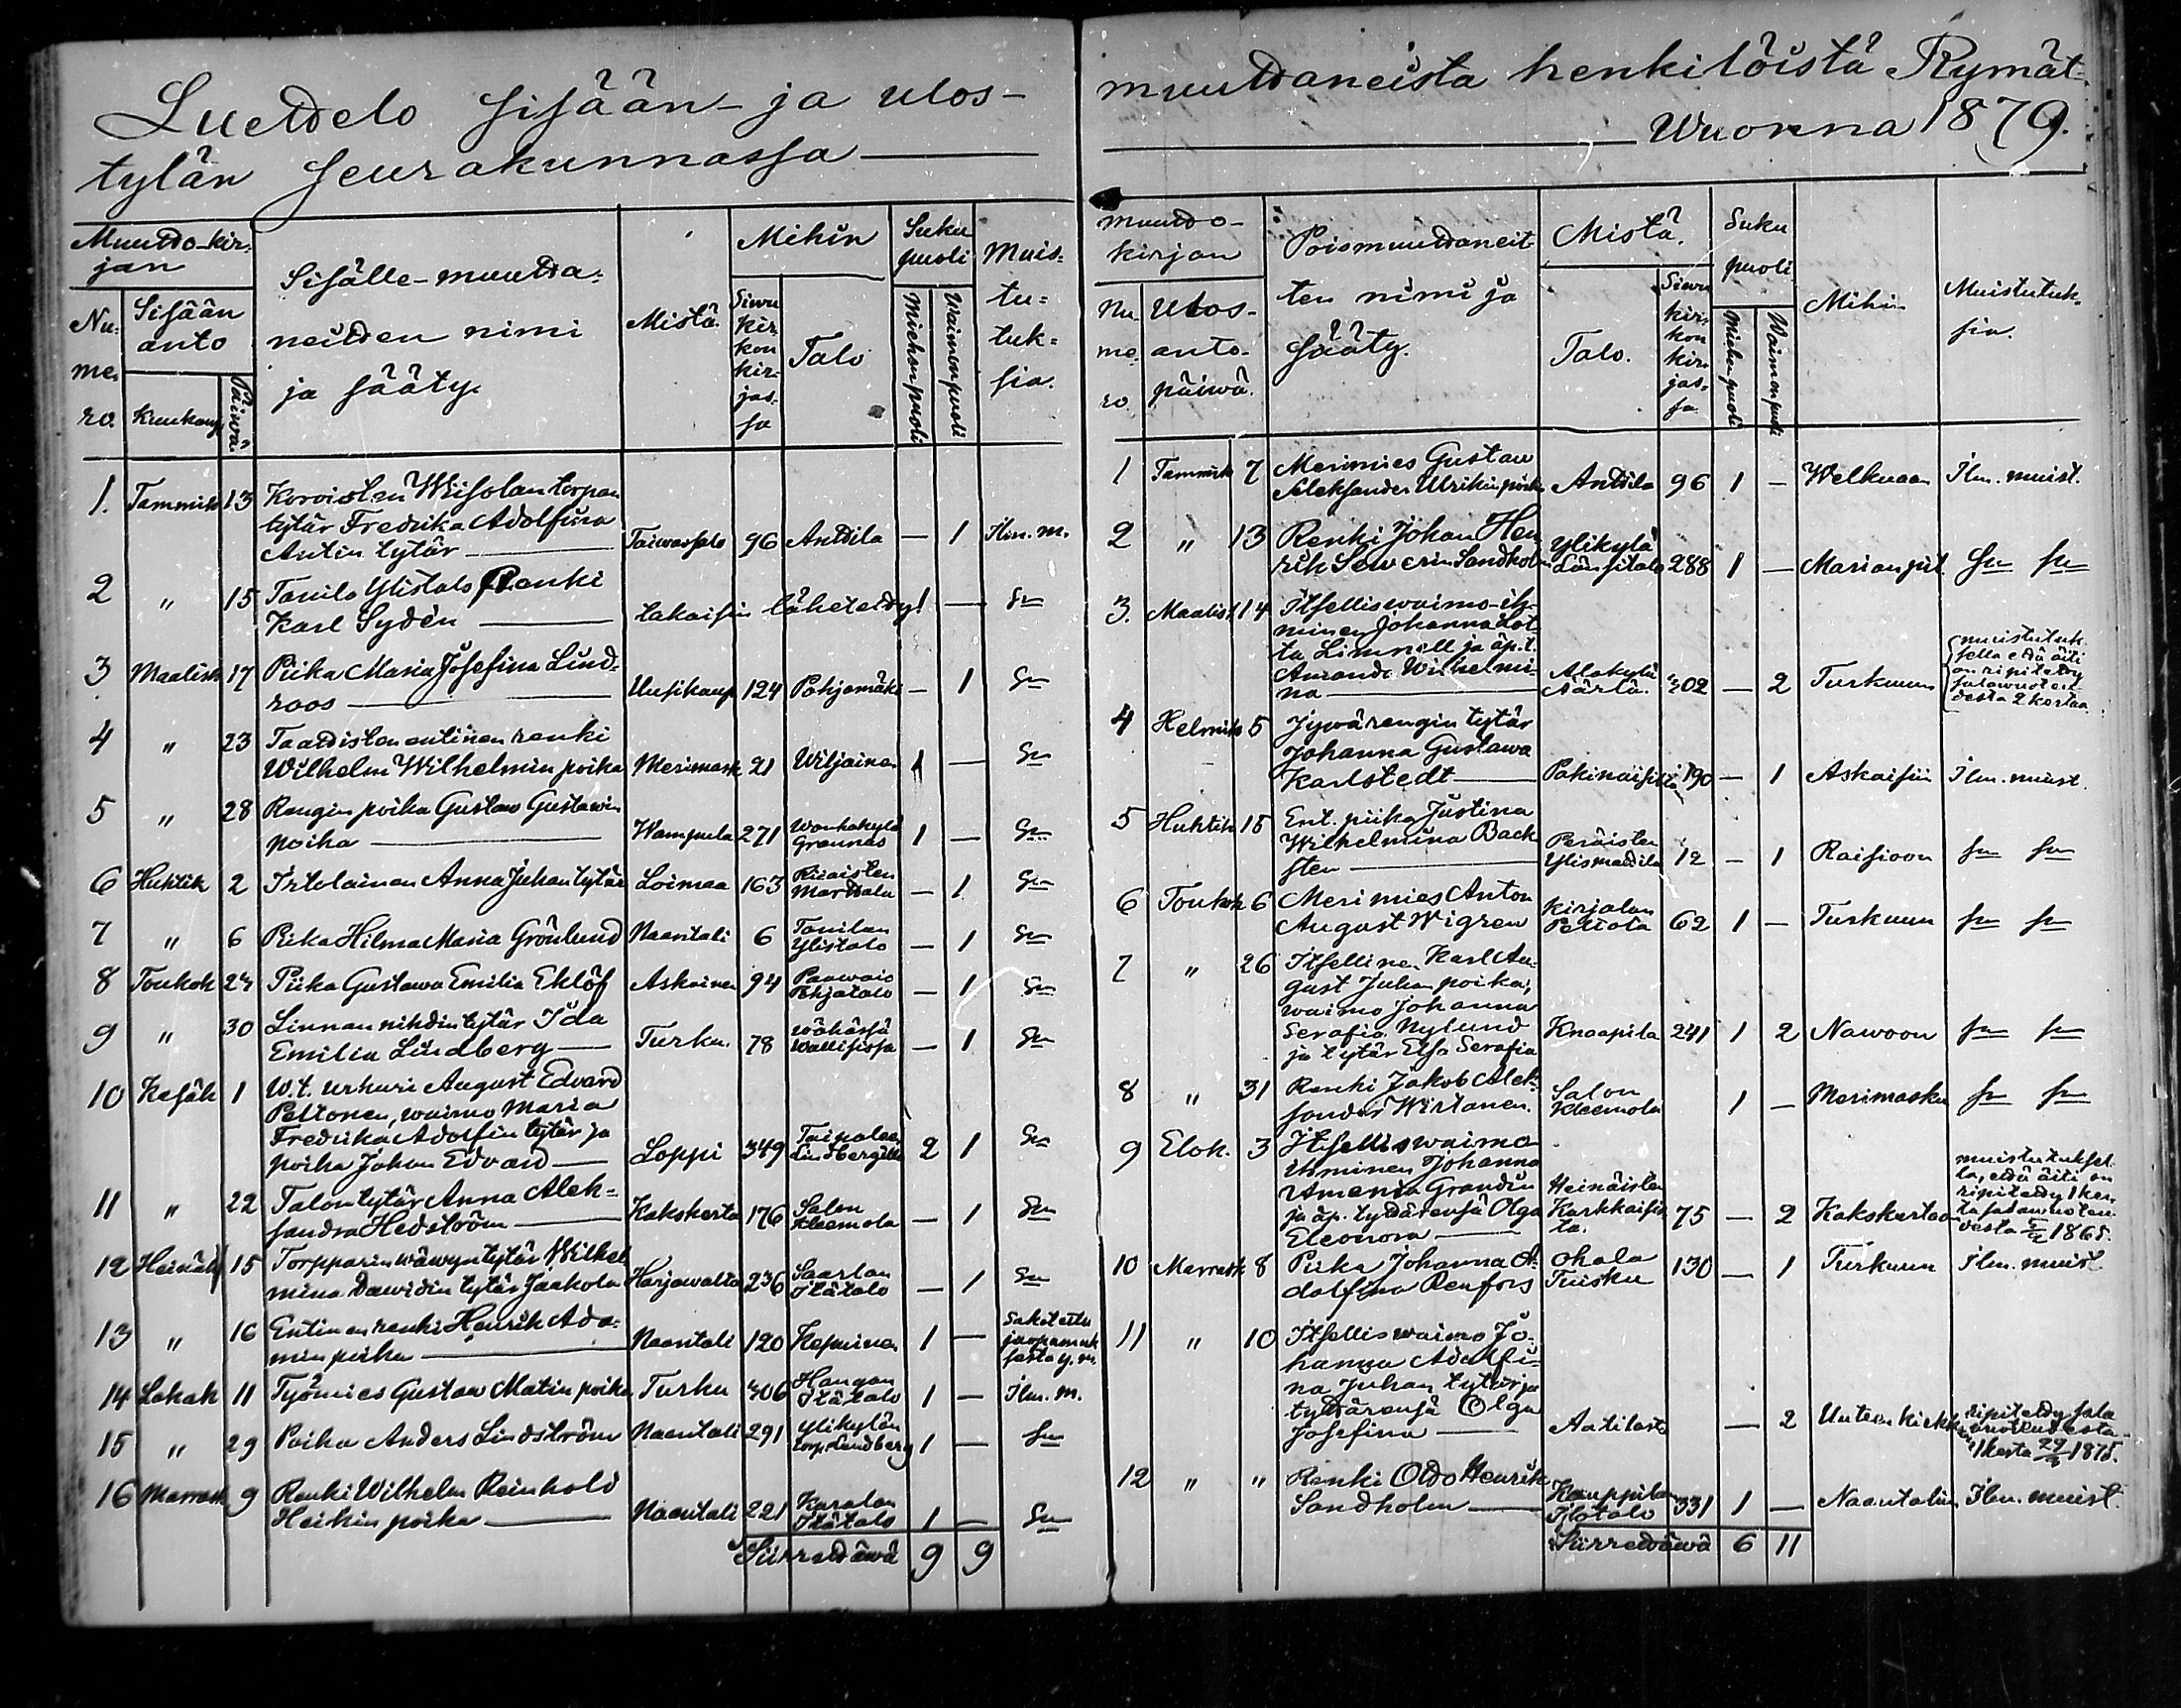 Luettelo sisään- ja ulos-
tylän seurakunnassa
Muutto-kir-
jan
Nu-
me-
ro.
Sisään
anto
Kuukausi
Päivä
Sisälle-muutta-
neitten nimi
ja sääty.
Mistä.
Mihin
Sivu
kir-
kon
kir-
jas-
sa
Talo
Suku
puoli
Miehenpuoli
Vaimonpuoli
Muis-
tu-
tuk-
sia.
1. Tammik 13 Korvoisten Weisolan torpan
tytär Fredrika Adolfina
Antin tytär Taivassalo 96 Anttila — 1 Ilm. m.
2 " 15 Tanila Ylistalo Renki
Karl Sydén takaisin lähetetty 1 — Sn
3 Maalisk 17 Piika Maria Josefina Lind-
roos Uusikaup 124 Pohjamäki — 1 Sn
4 " 23 Taattisten entinen renki
Wilhelm Wilhelmin poika Merimask 21 Wiljainen 1 — Sn
5 " 28 Rengin poika Gustav Gustavin
poika Wampula 271 Wanhakylä
Grannas 1 — Sn
6 Huhtik 2 Irtolainen Anna Juhan tytär Loimaa 163 Riiaisten
Marttala — 1 Sn
7 " 6 Piika Hilma Maria Grönlund Naantali 6 Tanilan
Ylistalo — 1 Sn
8 Toukok 24 Piika Gustawa Emilia Eklöf Askainen 94 Paawais
Pohjatalo — 1 Sn
9 " 30 Linnan nihdin tytär Ida
Emilia Lindberg Turku. 78 wähässä
Wallisissa — 1 Sn
10 Kesäk 1 W.t. urkuri August Edvard
Peltonen, waimo Maria
Fredrika Adolfin tytär ja
poika Johan Edvard Loppi 349 Taipaleen
Lindbergilla 2 1 Sn
11 " 22 Talon tytär Anna Alek-
sandra Hedström Kakskerta 176 Salon
Kleemola — 1 Sn
12 Heinäk 15 Torpparin wäwyn tytär Wilhel
mina Dawidin tytär Jaakola Harjawalta 236 Saarlan
Itätalo — 1 Sn
13 " 16 Entinen renki Henrik Ada-
min poika Naantali 120 Kepainen 1 — Sakotettu
14 Lokak 11 Työmies Gustav Matin poika Turku 306 Hangan
Itätalo 1 — Ilm. m.
15 " 29 Poika Anders Lindström Naantali 291 Ylikylän
torp. Lundberg 1 — Sn
16 Marrask 9 Renki Wilhelm Reinhold
Heikin poika Naantali 221 Karalan
Itätalo 1 — Sn
Siirrettävä 9 9
muuttaneista henkilöistä Rymät-
Wuonna 1879.
Muutto-
kirjan
Nu
me
ro.
Ulos-
anto-
päivä.
Poismuuttaneit
ten nimi ja
sääty.
Mistä.
Talo.
Sivu
kir-
kon
kir-
jas-
sa
Suku
puoli
Miehenpuoli
Waimonpuoli
Mihin
Muistutuk-
sia.
1 Tammik 7 Merimies Gustav
Aleksander Ulrikin poika Anttila 96 1 — Welkuaan Ilm. muist.
2 " 13 Renki Johan Hen
rik Severin Sandholm Ylikylä
Länsitalo 288 1 — Marian pit. Sn Sn
3. Maalisk 14 Itsellis waimo-ih-
minen Johanna Lot-
ta Limnell ja äp. t.
Amanda Wilhelmi-
na Alakylä
Närlä. 302 — 2 Turkuun muistutuk-
sella että äiti
on ripitetty
salavuoteu-
desta 2 kertaa.
4 Helmik 5 Jywärengin tytär
Johanna Gustawa
Karlstedt Pakinaisista 190 — 1 Askaisiin Ilm. muist.
5 Huhtik 15 Ent. piika Justina
Wilhelmina Back
sten Peräisten
Ylismattila 12 — 1 Raisioon Sn Sn
6 Toukok 6 Merimies Anton
August Wigren Kirjalan
Pettola 62 1 — Turkuun Sn Sn
7 " 26 Itsellinen Karl Au-
gust Juhan poika,
waimo Johanna
Serafia Nylund
ja tytär Elsa Serafia Knaapila 241 1 2 Nawoon Sn Sn
8 " 31 Renki Jakob Alek-
sander Wirtanen. Salon
Kleemola 1 — Merimasku Sn Sn
9 Elok. 3 Itsellis waimo
ihminen Johanna
Amanda Grandin
ja äp. tyttärensä Olga
Eleonora Heinäisten
Karkkaisis
ta. 75 — 2 Kakskertaan muistutuksel-
la, että äiti on
ripitetty 1 ker-
ta salavuoteu-
desta 1865.
10 Marrask 8 Piika Johanna A-
dolfina Renfors Ohala
Tuisku 130 — 1 Turkuun Ilm. muist
11 " 10 Itsellis waimo Jo-
hanna Adolfi-
na Juhan tytär ja
tyttärensä Olga
Josefina Aatilasta — 2 Uuteen kirkk ripitetty sala
vuoteudesta
1 kerta 1875.
12 " " Renki Otto Henrik
Sandholm Kauppilan
Isotalo 331 1 — Naantaliin Ilm. muist.
Siirrettävä 6 11